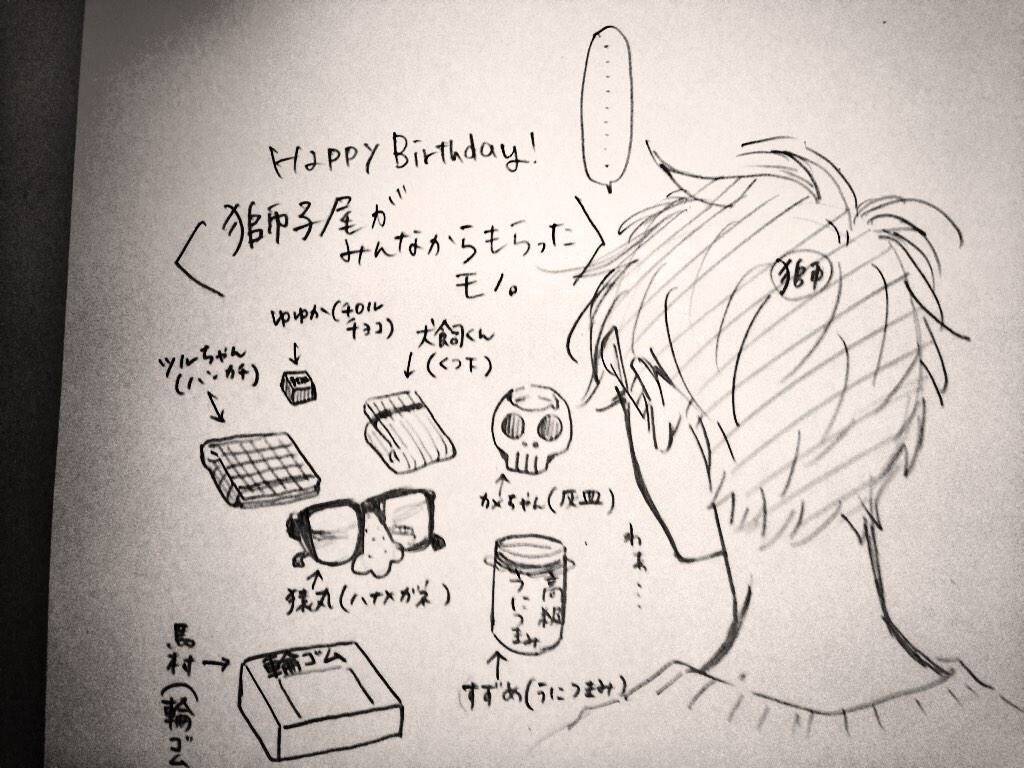 Happy Birthday!
獅子尾が
みんなからもらった
モノ。
ゆゆか(チロル
チョコ)
犬飼くん
(くつ下)
ツルちゃん
(ハンカチ)
獅
カメちゃん(灰皿)
わぁ…
猿丸(ハナメガネ)
高級
うにつまみ
すずめ(うにつまみ)
輪ゴム
馬村(輪ゴム